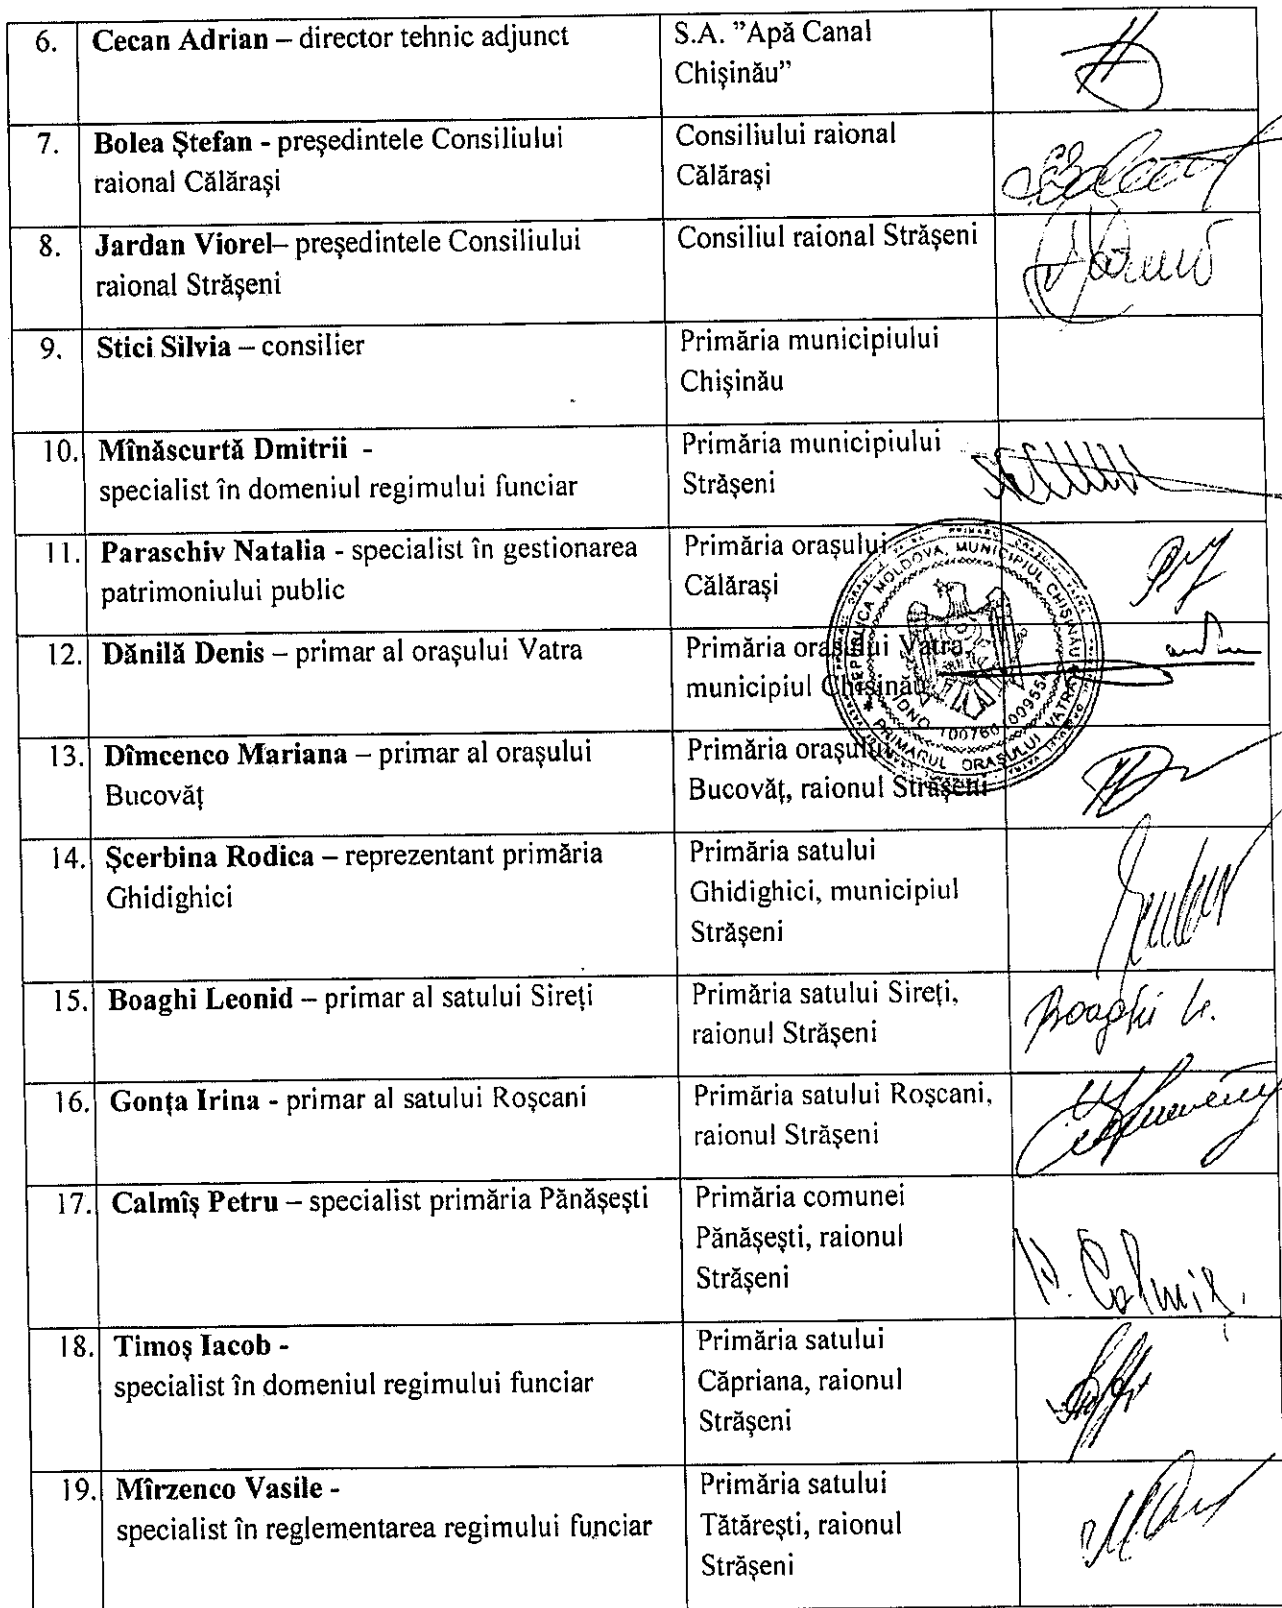 6. Cecan Adrian – director tehnic adjunct
S.A. ”Apă Canal
Chișinău”
7. Bolea Ștefan - președintele Consiliului
raional Călărași
Consiliului raional
Călărași
8. Jardan Viorel– președintele Consiliului
raional Strășeni
Consiliul raional Strășeni
9. Stici Silvia – consilier
Primăria municipiului
Chișinău
10. Mînăscurtă Dmitrii -
specialist în domeniul regimului funciar
Primăria municipiului
Strășeni
11. Paraschiv Natalia - specialist în gestionarea
patrimoniului public
Primăria orașului
Călărași
12. Dănilă Denis – primar al orașului Vatra
Primăria orașului Vatra,
municipiul Chișinău
REPUBLICA MOLDOVA, MUNICIPIUL CHIȘINĂU
PRIMARUL ORAȘULUI VATRA
IDNO
13. Dîmcenco Mariana – primar al orașului
Bucovăț
Primăria orașului
Bucovăț, raionul Strășeni
14. Șcerbina Rodica – reprezentant primăria
Ghidighici
Primăria satului
Ghidighici, municipiul
Strășeni
15. Boaghi Leonid – primar al satului Sireți
Primăria satului Sireți,
raionul Strășeni
Boaghi L.
16. Gonța Irina - primar al satului Roșcani
Primăria satului Roșcani,
raionul Strășeni
17. Calmîș Petru – specialist primăria Pănășești
Primăria comunei
Pănășești, raionul
Strășeni
P. Calmîș.
18. Timoș Iacob -
specialist în domeniul regimului funciar
Primăria satului
Căpriana, raionul
Strășeni
19. Mîrzenco Vasile -
specialist în reglementarea regimului funciar
Primăria satului
Tătărești, raionul
Strășeni